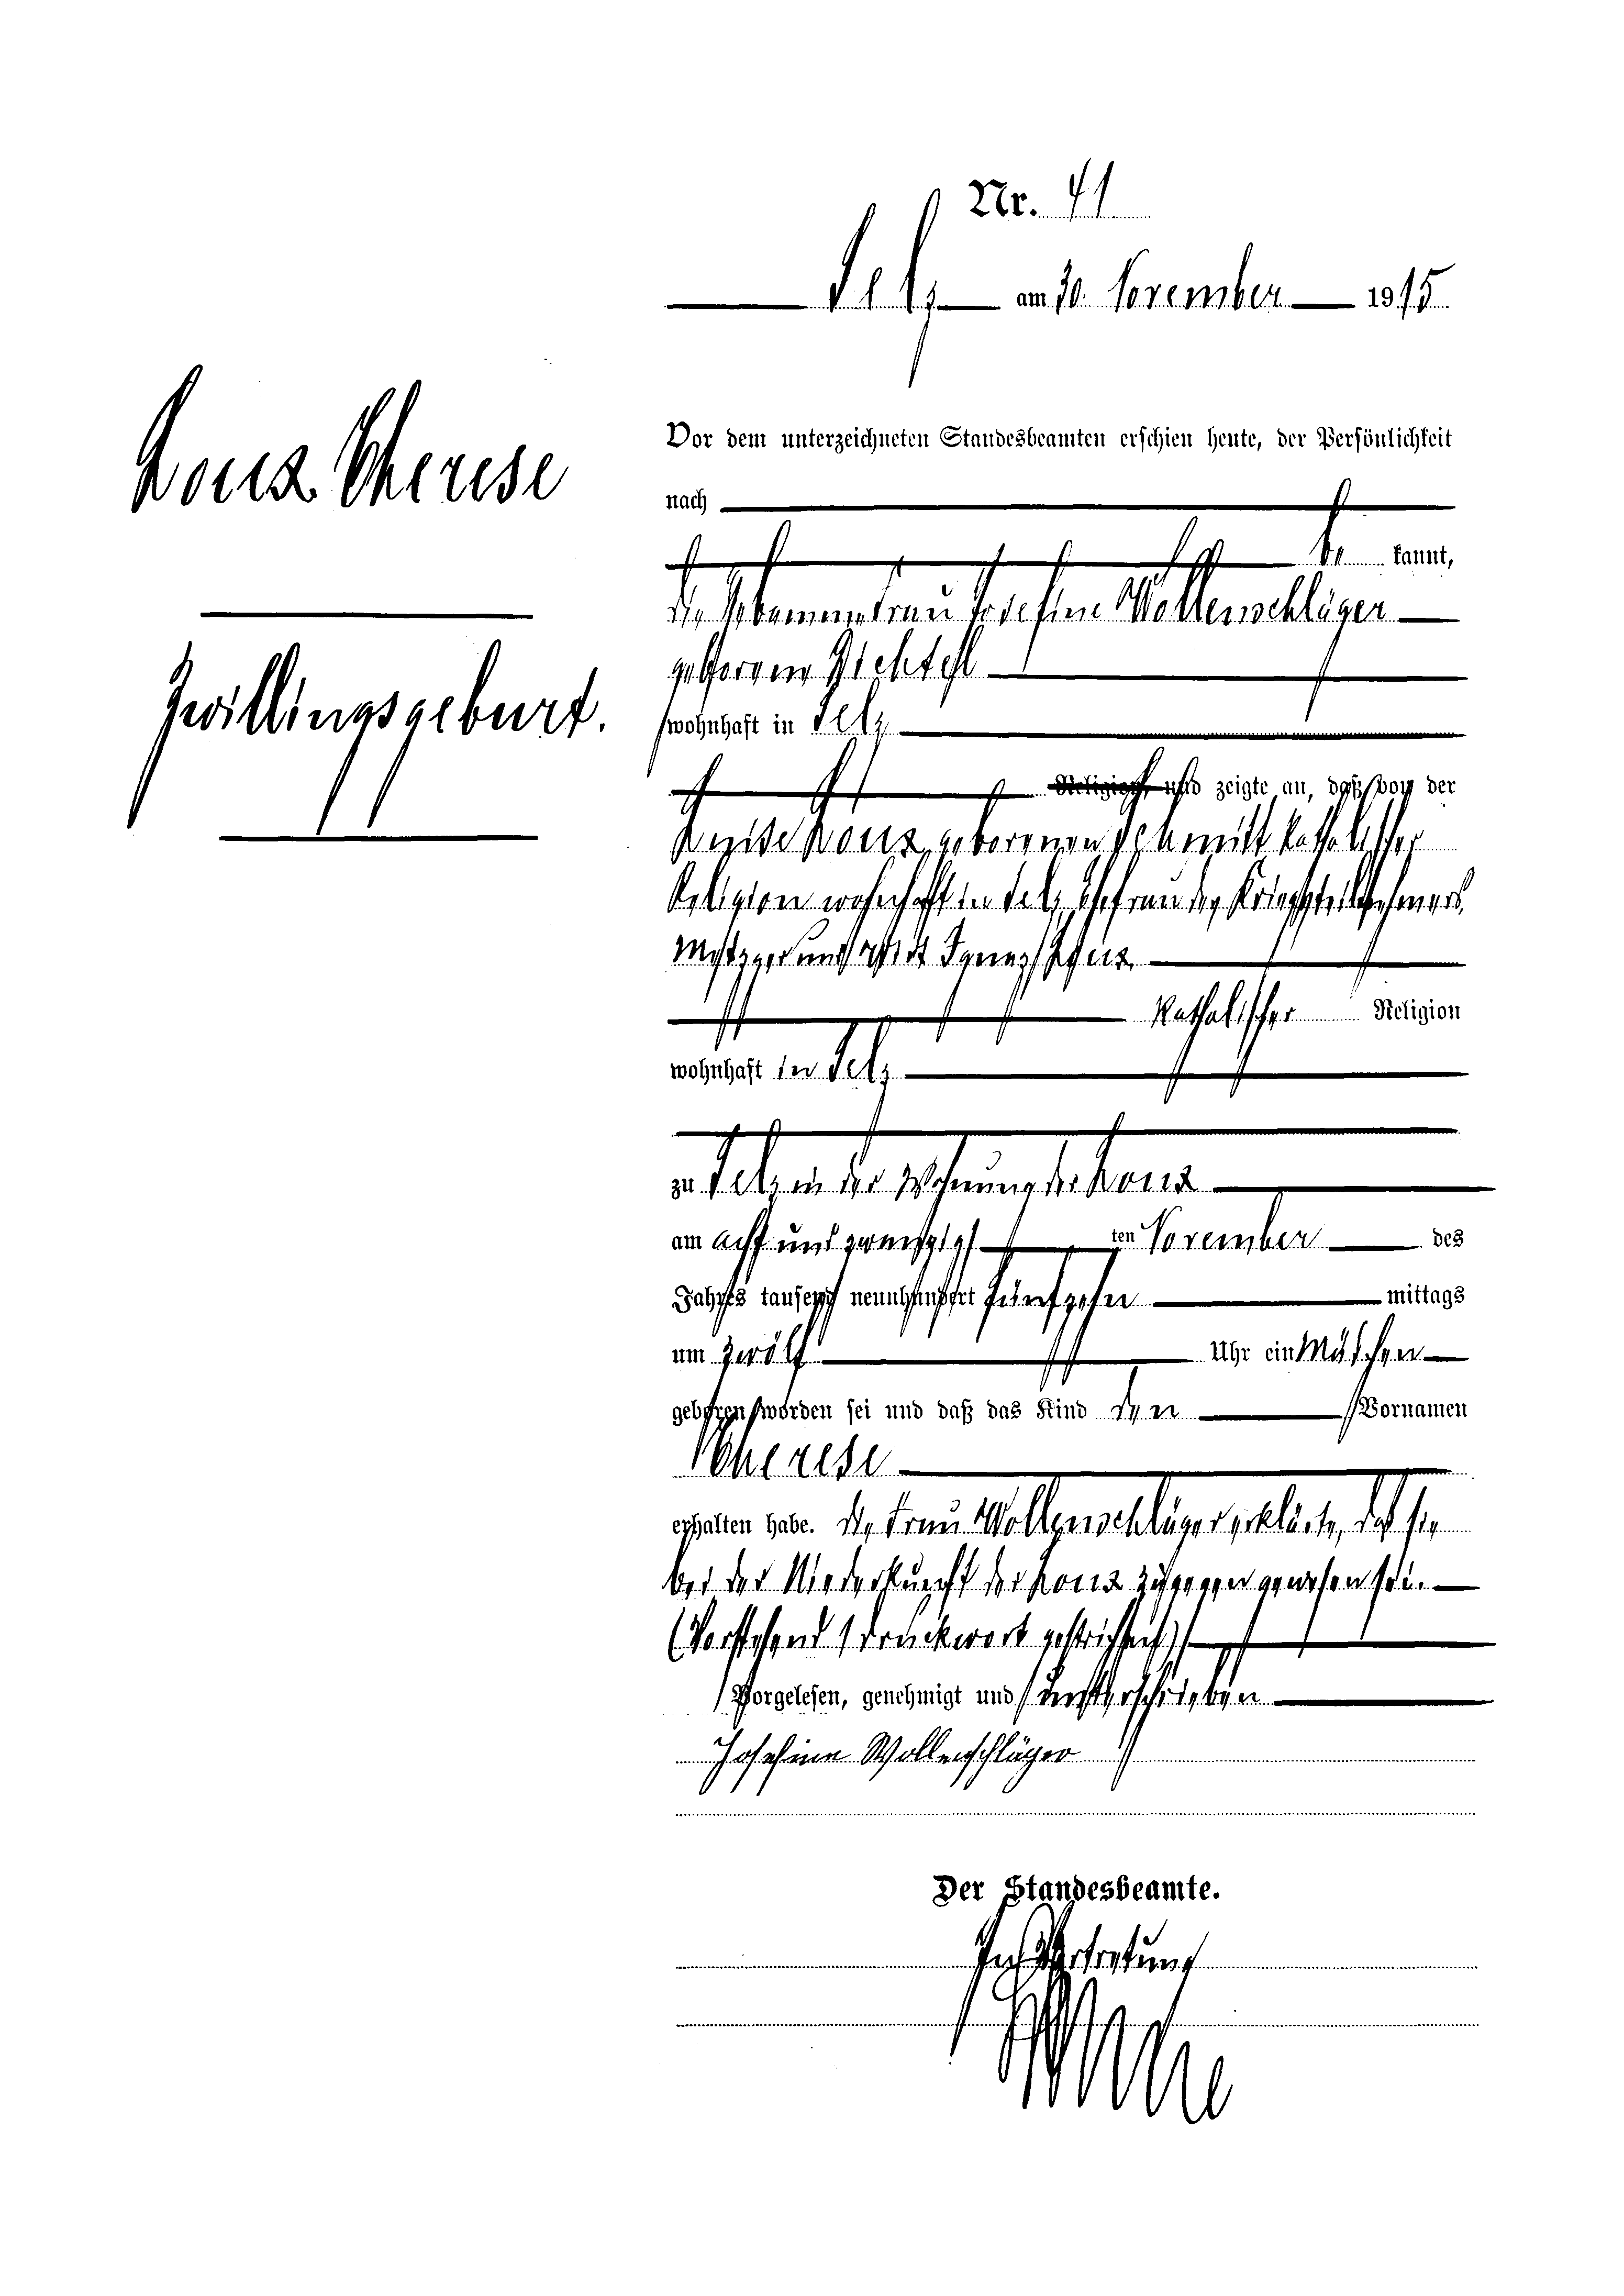 Nr. 41
Selz am 30. November 1915
Loux Therese
Zwillingsgeburt.
Vor dem unterzeichneten Standesbeamten erschien heute, der Persönlichkeit
nach
be kannt,
die Hebamme Frau Josefine Wollenschläger
geborene Bechtel
wohnhaft in Selz
Religion, und zeigte an, daß von der
Luise Loux geborenen Schmitt katholischer
Religion wohnhaft in Selz Ehefrau des Kriegsteilnehmers
Metzger und Wirt Ignaz Loux
katholischer Religion
wohnhaft in Selz
zu Selz in der Wohnung der Loux
am acht und zwanzigsten November des
Jahres tausend neunhundert fünfzehn mittags
um zwölf Uhr ein Mädchen
geboren worden sei und daß das Kind den Vornamen
Therese
erhalten habe. Die Frau Wollenschläger erklärte, daß sie
bei der Niederkunft der Loux zugegen gewesen sei.
(Vorstehend 1 Druckwort gestrichen)
Vorgelesen, genehmigt und unterschrieben
Josefine Wollenschläger
Der Standesbeamte.
In Vertretung